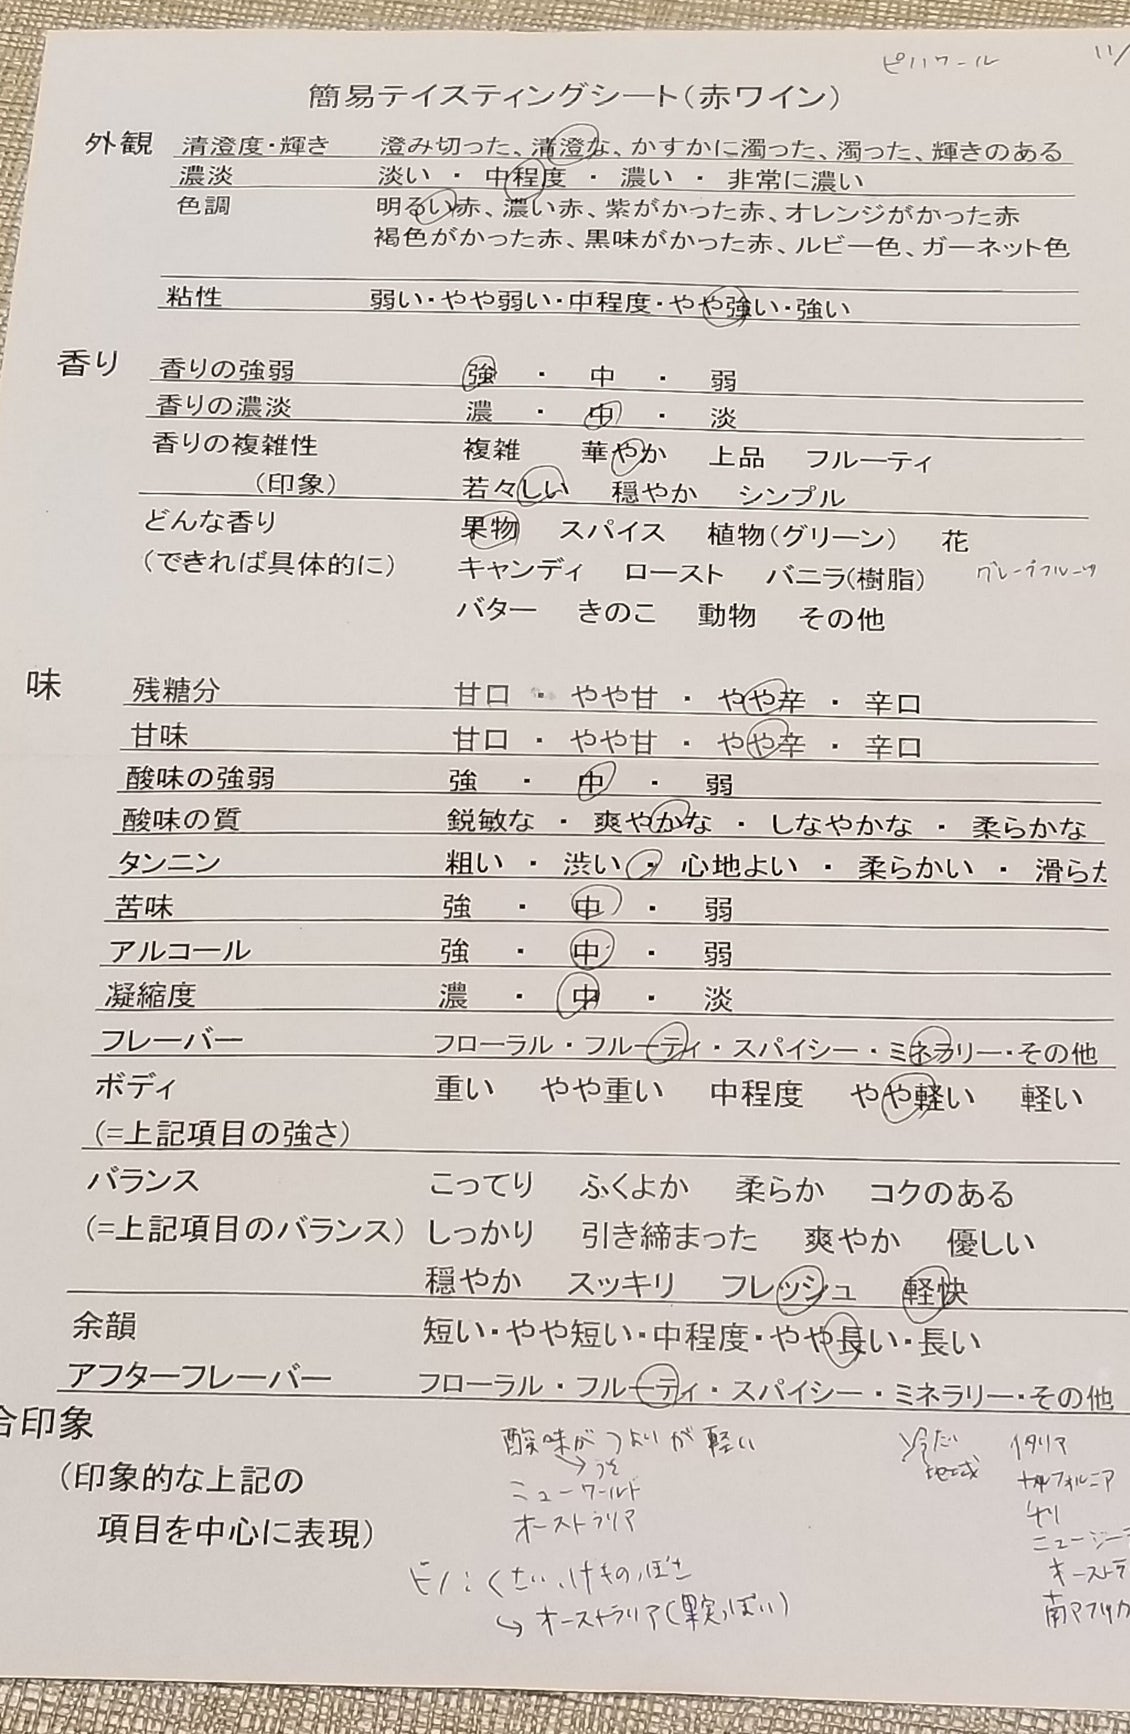 ピノノワール 11/
簡易テイスティングシート(赤ワイン)
外観 清澄度・輝き 澄み切った、清澄な、かすかに濁った、濁った、輝きのある
濃淡 淡い ・ 中程度 ・ 濃い ・ 非常に濃い
色調 明るい赤、濃い赤、紫がかった赤、オレンジがかった赤
褐色がかった赤、黒味がかった赤、ルビー色、ガーネット色
粘性 弱い・やや弱い・中程度・やや強い・強い
香り 香りの強弱 強 ・ 中 ・ 弱
香りの濃淡 濃 ・ 中 ・ 淡
香りの複雑性 複雑 華やか 上品 フルーティ
(印象) 若々しい 穏やか シンプル
どんな香り 果物 スパイス 植物(グリーン) 花
(できれば具体的に) キャンディ ロースト バニラ(樹脂) グレープフルーツ
バター きのこ 動物 その他
味 残糖分 甘口 ・ やや甘 ・ やや辛 ・ 辛口
甘味 甘口 ・ やや甘 ・ やや辛 ・ 辛口
酸味の強弱 強 ・ 中 ・ 弱
酸味の質 鋭敏な ・ 爽やかな ・ しなやかな ・ 柔らかな
タンニン 粗い ・ 渋い ・ 心地よい ・ 柔らかい ・ 滑らた
苦味 強 ・ 中 ・ 弱
アルコール 強 ・ 中 ・ 弱
凝縮度 濃 ・ 中 ・ 淡
フレーバー フローラル・フルーティ・スパイシー・ミネラリー・その他
ボディ 重い やや重い 中程度 やや軽い 軽い
(=上記項目の強さ)
バランス こってり ふくよか 柔らか コクのある
(=上記項目のバランス) しっかり 引き締まった 爽やか 優しい
穏やか スッキリ フレッシュ 軽快
余韻 短い・やや短い・中程度・やや長い・長い
アフターフレーバー フローラル・フルーティ・スパイシー・ミネラリー・その他
合印象 酸味がつよいが軽い 冷たい 地域 イタリア
(印象的な上記の ニューワールド カルフォルニア
項目を中心に表現) オーストラリア チリ
ニュージー
ピノ:くさい、けものっぽさ オーストラ
↳オーストラリア(果実っぽい) 南アフリカ